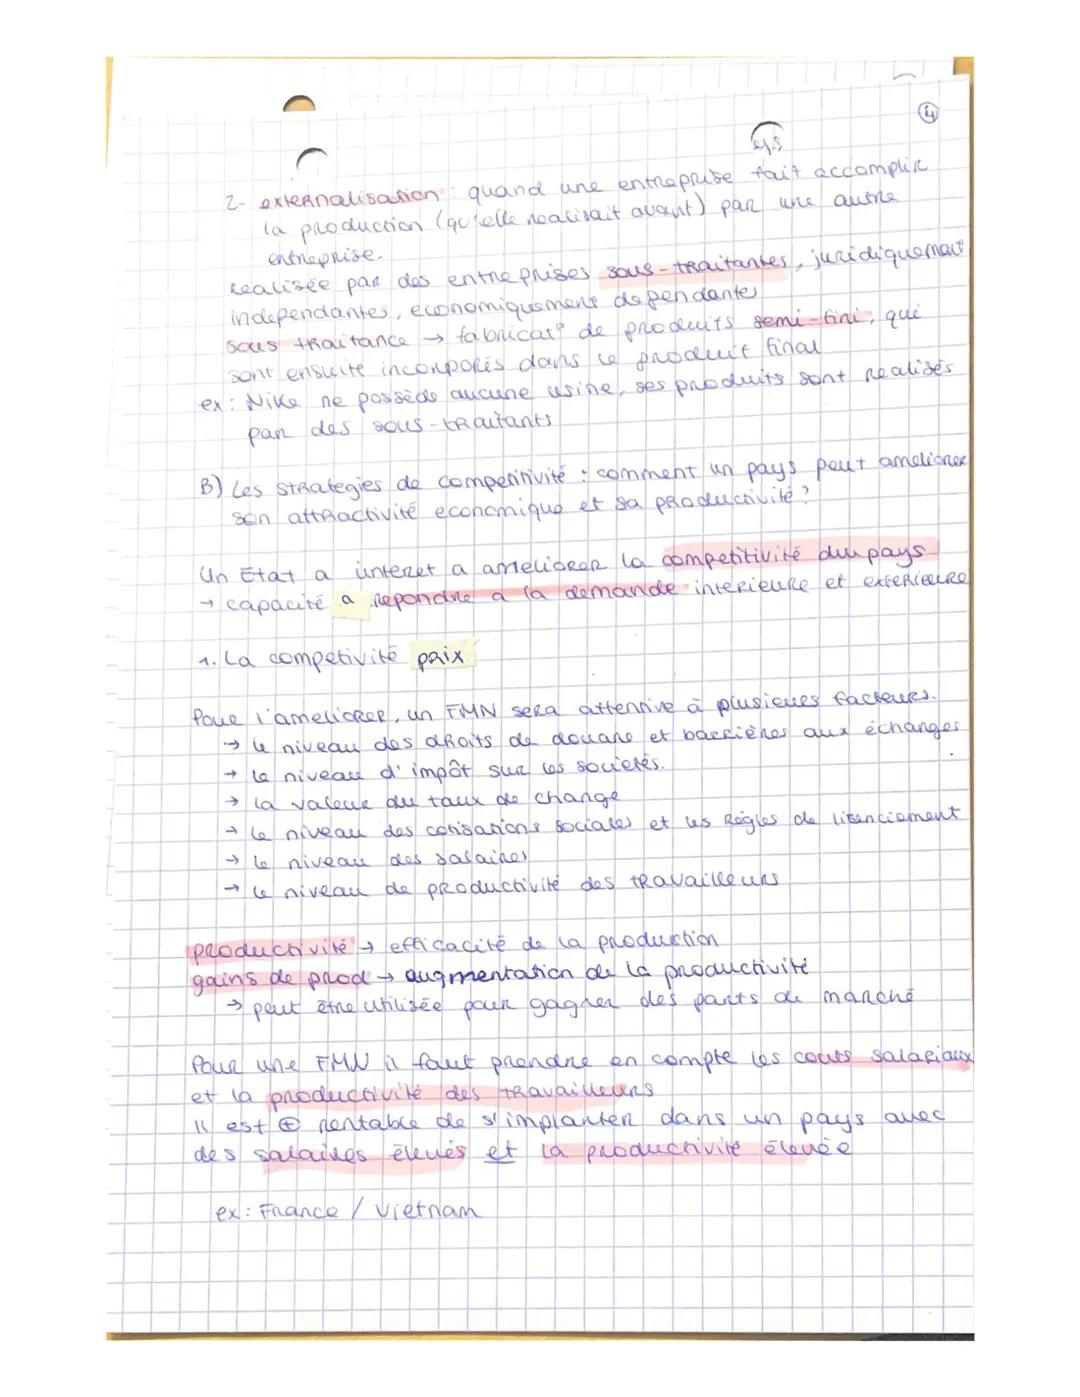 4
2- externalisation : quand une entreprise fait accomplir
la production (qu'elle realisait avant) par une autre
entreprise.
Realisée par des entreprises sous-traitantes, juridiquement
independantes, economiquement dependantes
sous traitance → fabricat° de produits semi-fini, qui
sont ensuite incorporés dans le produit final
ex : Nike ne possède aucune usine, ses produits sont realisés
par des sous-traitants
B) Les strategies de competitivité : comment un pays peut ameliorer
son attractivité economique et sa productivité ?
Un Etat a interet a ameliorer la competitivité du pays
→ capacité a repondre a la demande interieure et exterieure
1. La competivité prix
Pour l'ameliorer, un FMN sera attentive à plusieurs facteurs.
→ le niveau des droits de douane et barrières aux échanges
→ le niveau d'impôt sur les societés.
→ la valeur du taux de change
→ le niveau des cotisations sociales et les Règles de licenciement
→ le niveau des salaires
→ le niveau de productivité des travailleurs
productivité → efficacité de la production
gains de prod → augmentation de la productivité
→ peut être utilisée pour gagner des parts de marché
Pour une FMN il faut prendre en compte les couts salariaux
et la productivité des travailleurs
Il est ⊕ rentable de s'implanter dans un pays avec
des salaires élevés et la productivité élevée
ex : France / Vietnam